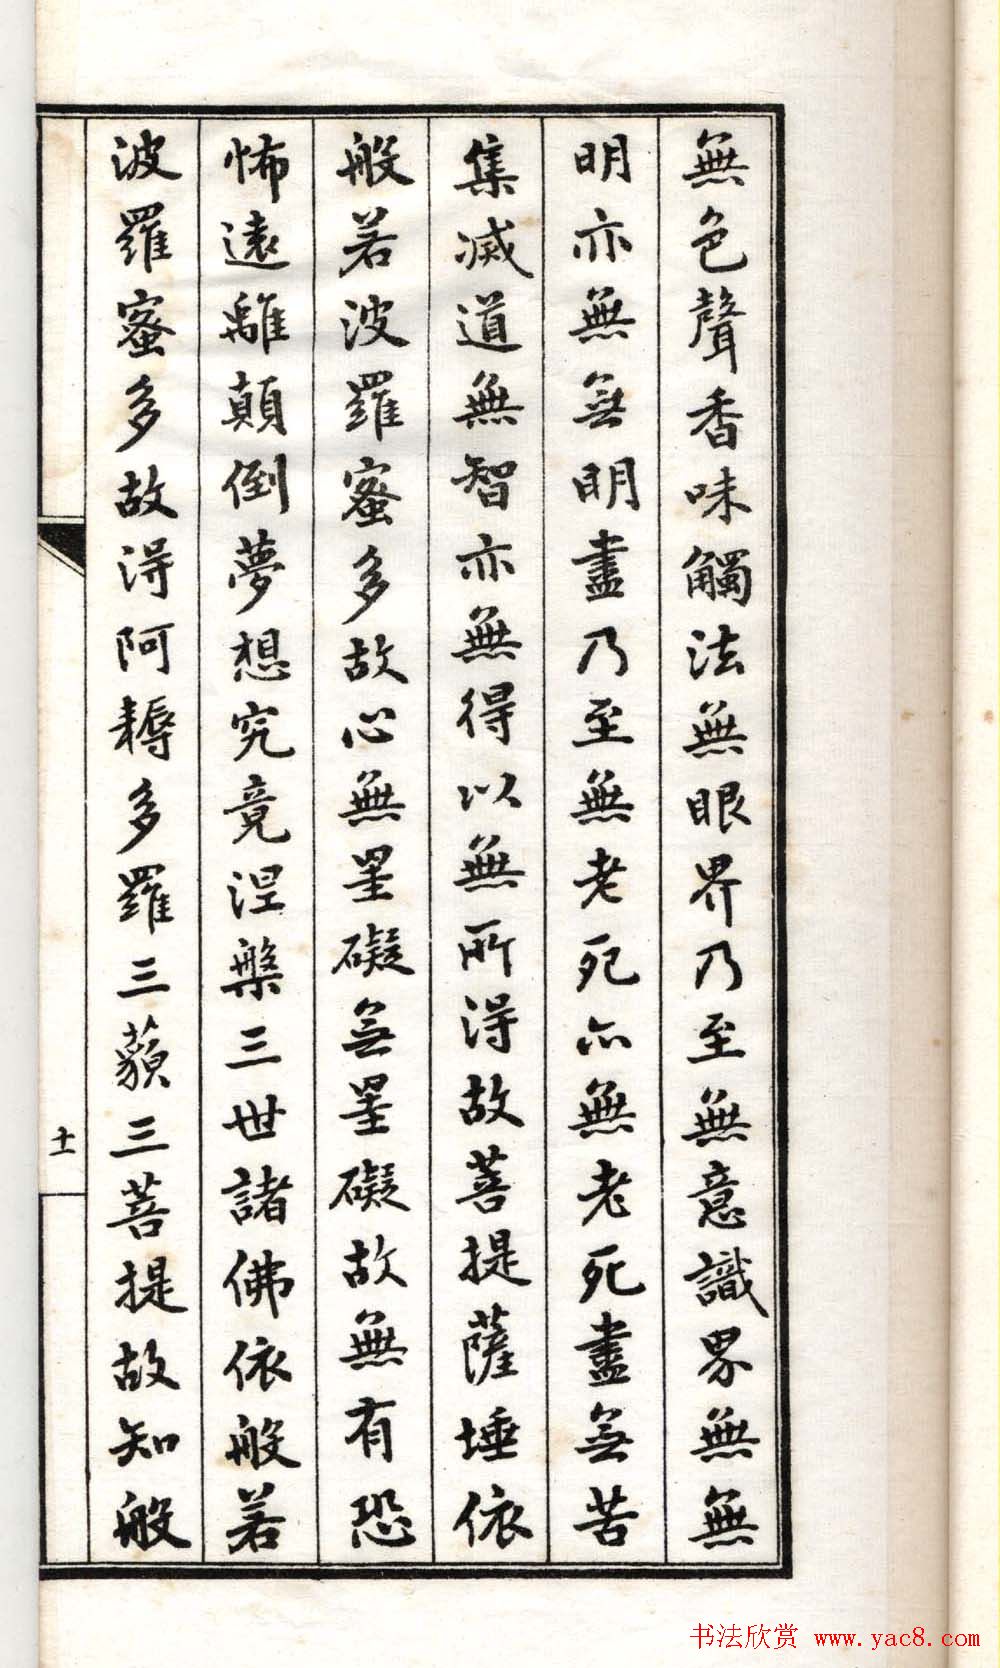 無色聲香味觸法無眼界乃至無意識界無無
明亦無无明盡乃至無老死亦無老死盡无苦
集滅道無智亦無得以無所得故菩提薩埵依
般若波羅蜜多故心無罣礙无罣礙故無有恐
怖遠離顛倒夢想究竟涅槃三世諸佛依般若
波羅蜜多故得阿耨多羅三藐三菩提故知般
十一
书法欣赏 www.yac8.com